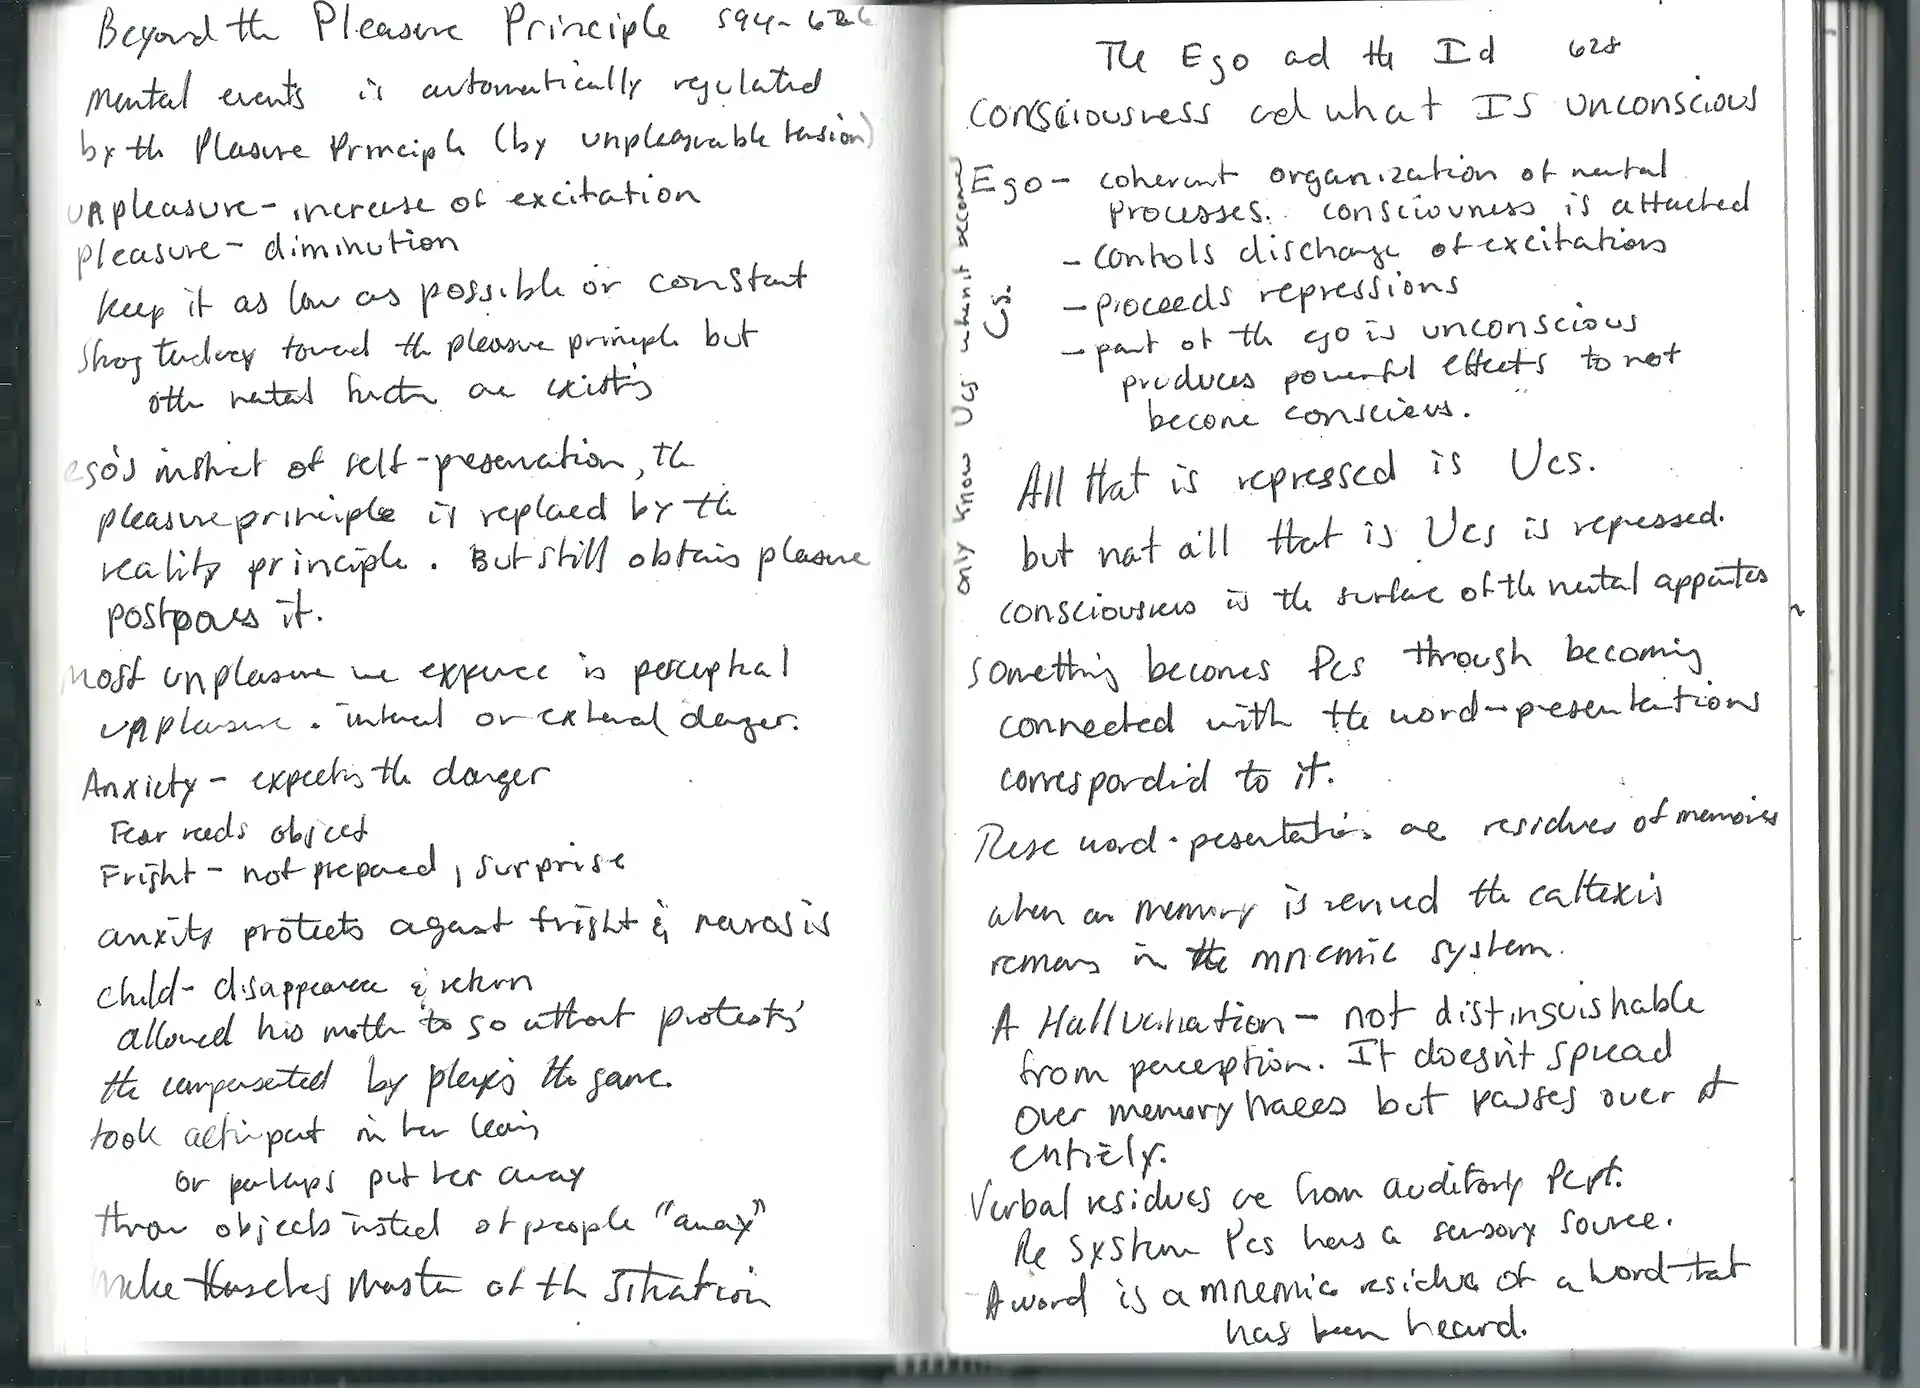 Beyond the Pleasure Principle 594-626
Mental events is automatically regulated
by the Plasure Principle (by unpleasurable tension)
unpleasure - increase of excitation
pleasure - diminution
keep it as low as possible or constant
Strog tendecy toward the pleasure principle but
othe mental are existig
ego's instinct of self-preservation, the
pleasure principle is replaced by the
reality principle. But still obtains pleasure
postpones it.
Most unpleasure we experience is perceptual
unpleasure. internal or external danger.
Anxiety - expecting the danger
Fear needs object
Fright - not prepared, surprise
anxity protects against fright & neurosis
child - disappearence & return
allowed his mother to go without protestig
the compensated by playig the game.
took active part in her leavig
or perhaps put her away
throw objects insted of people "away"
Make themselves Master of the Situation
The Ego and the Id 628
Consciousness and what IS unconscious
Ego - coherent organization of mental
processes. consciouness is attached
- controls discharge of excitations
- proceeds repressions
- part of the ego is unconscious
produces powerful effects to not
become conscious.
only know Ucs when it becomes
Cs.
All that is repressed is Ucs.
but not all that is Ucs is repressed.
consciousness is the surface of the mental appartes
Something becomes Pcs through becoming
connected with the word-presentations
correspondid to it.
These word-presentations are residues of memories
when a memory is revived the cathexis
remains in the mnemic system.
A Hallucination - not distinguishable
from perception. It doesn't spread
over memory traces but passes over it
entirely.
Verbal residues are from auditory Pcpt.
The system Pcs has a sensory source.
A word is a mnemic residue of a word that
has been heard.